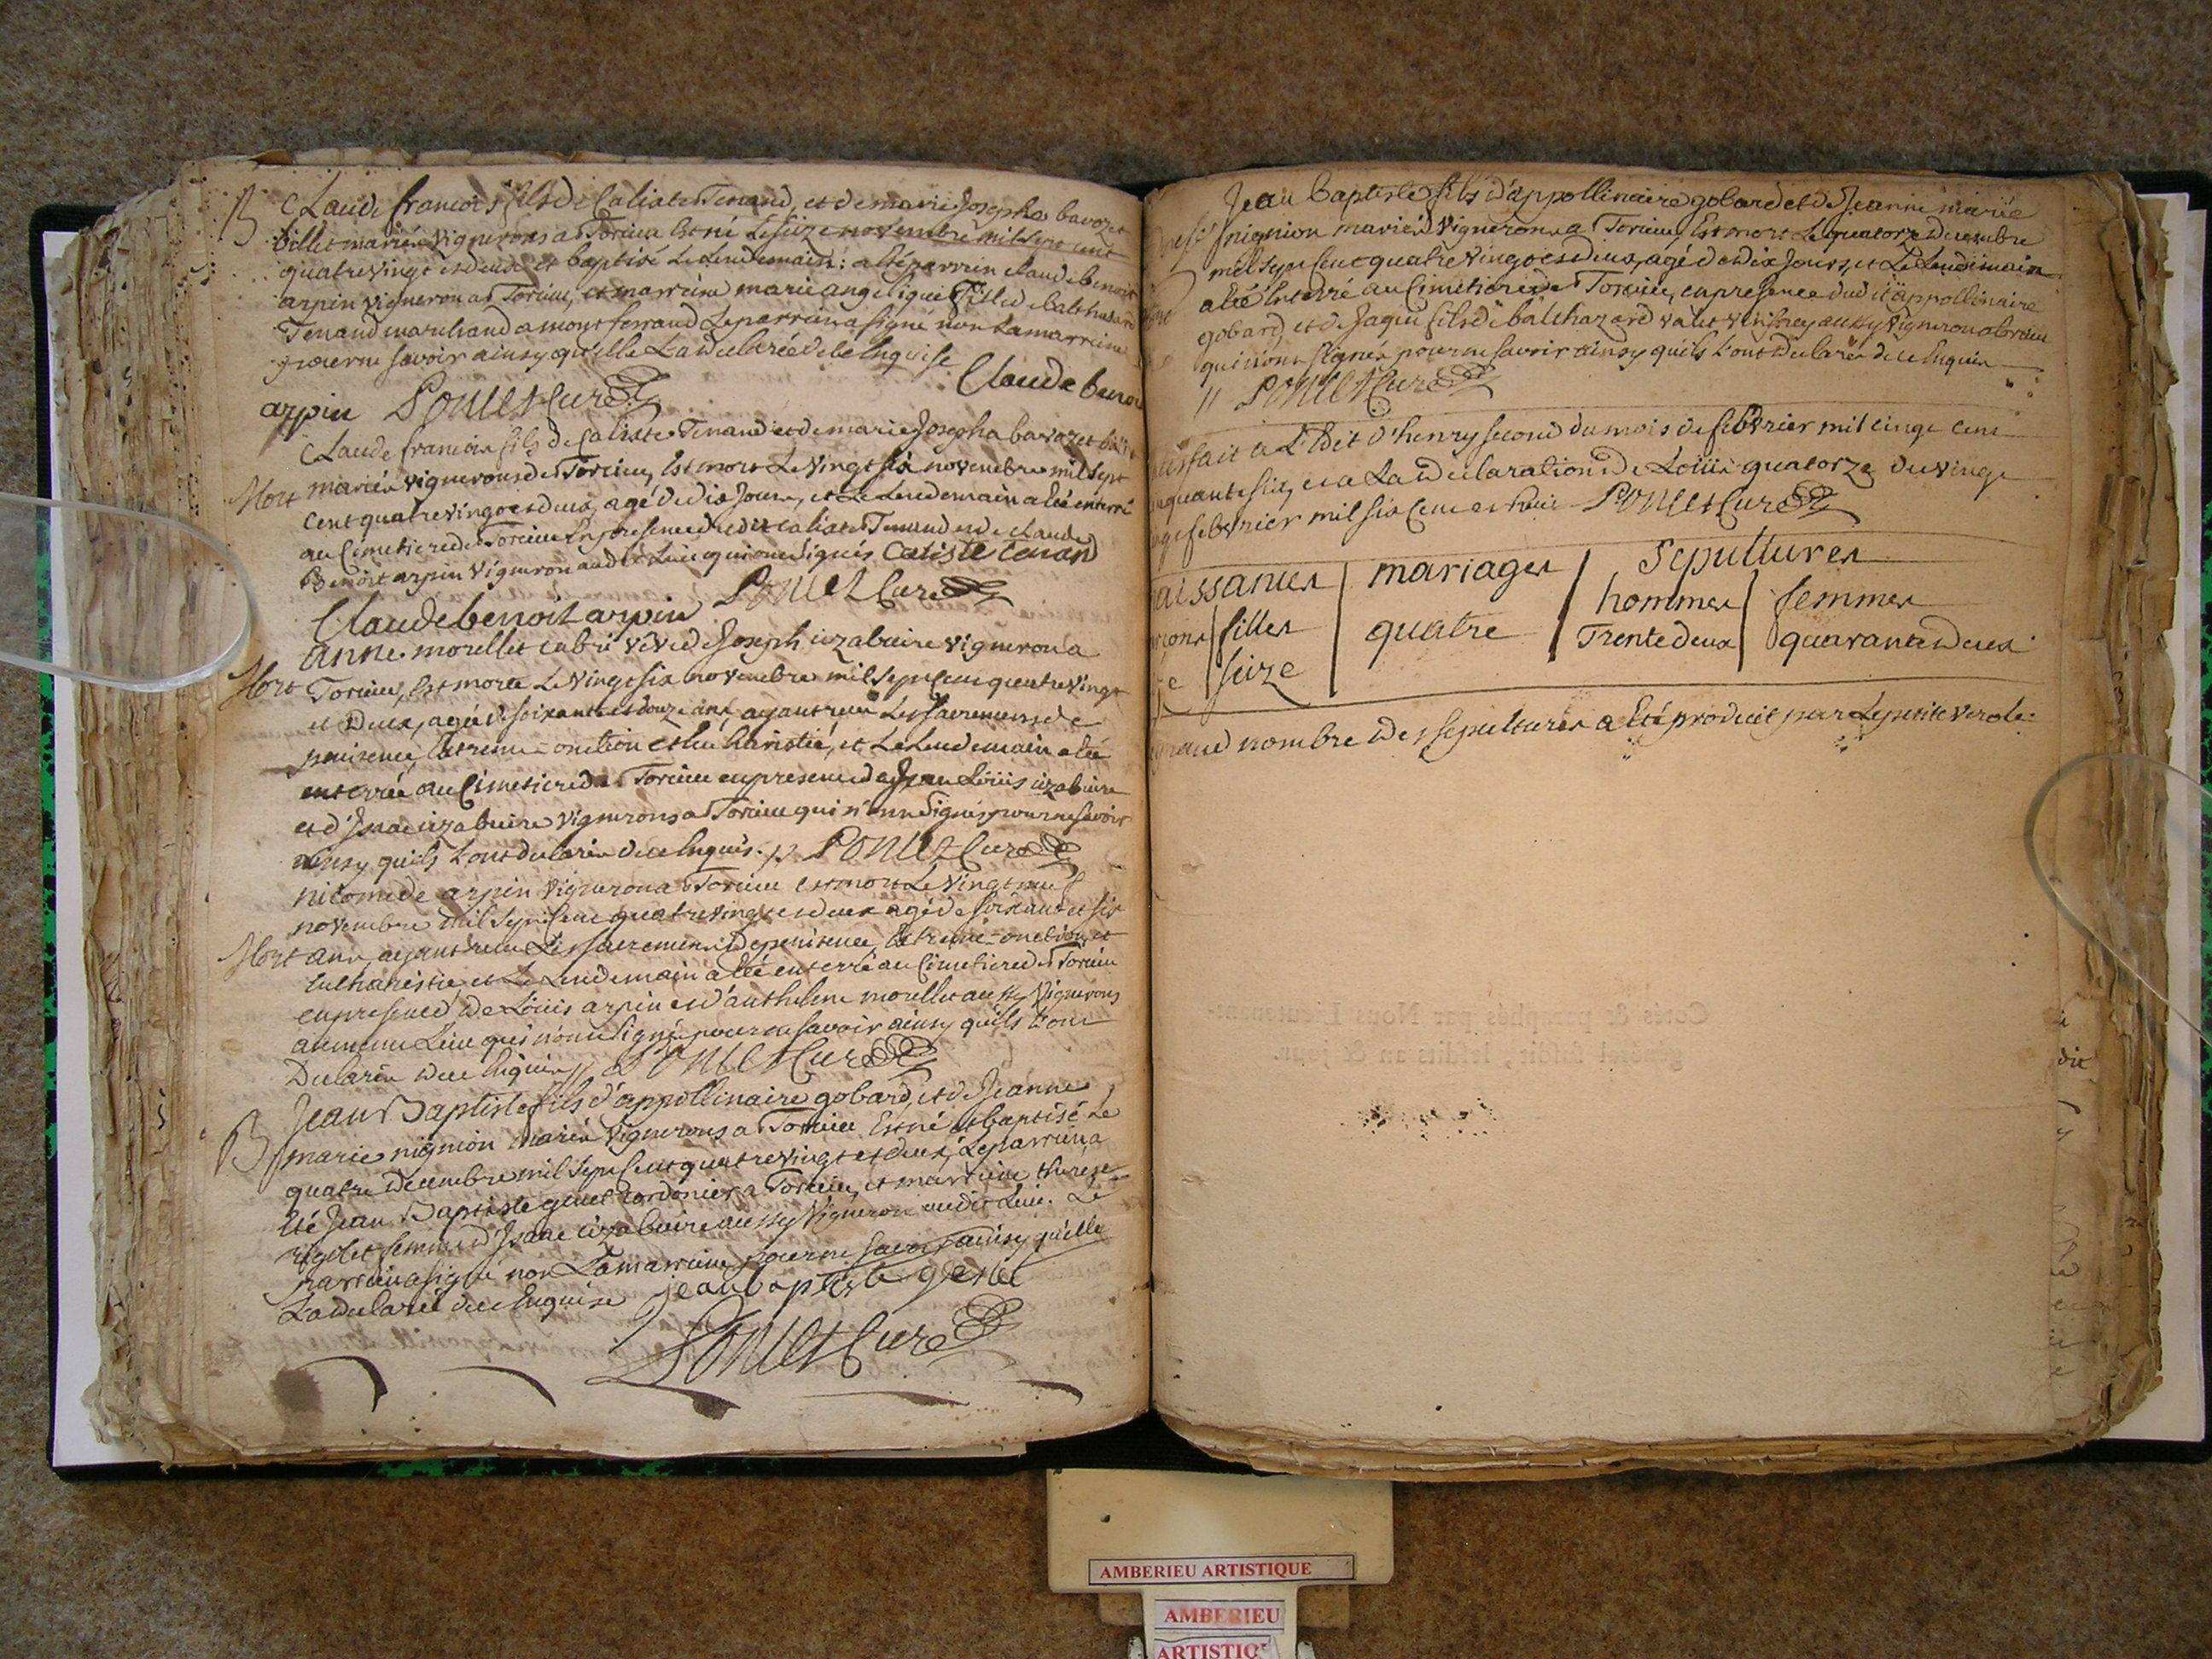 B Claude francois fils de Caliste Tenand, et de marie Josepha bavozet
billet mariés vignerons a Torcieu Est né le seize novembre mil sept cent
quatre vingt et deux et baptisé Le Lendemain: a été parrein claude benoit
arpin vigneron a Torcieu, et marreine marie angelique fille de balthazard
Tenand marchand a montferrand Le parrein a signé non La marreine
pour ne savoir ainsy qu'elle La declarée de ce Enquise Claude benoi
arpin PONCET Curé
Claude francois fils de Caliste Tenand et de marie Josepha bavozet
Mort mariés vignerons de Torcieu, Est mort Le vingt six novembre mil sept
cent quatre vingt et deux, agé de dix Jours, et Le Lendemain a été enterré
au Cimetiere de Torcieu En presence dudit caliste Tenand et de claude
Benoist arpin vigneron audit Lieu qui ont signés Caliste tenand
PONCET Curé
Claude benoit arpin
anne morellet cabri veve de Joseph cizabuire vigneron a
Mort Torcieu, Est morte Le vingt six novembre mil sept cent quatre vingt
et Deux, agée de soixante et douze ans, ayant reçu Les sacremens de
penitence, Extreme-onction et Eucharistie, et Le Lendemain a été
enterrée au Cimetiere de Torcieu en presence de Jean Loüis cizabuire
et d'Isaac cizabuire vignerons a Torcieu qui n'ont signés pour ne savoir
ainsy qu'ils L'ont declarés de ce Enquis. PONCET Curé
nicomede arpin vigneron a Torcieu est mort Le vingt neuf
novembre mil sept Cent quatre vingt et deux agé de soixante et six
Mort ans, ayant reçu Les sacremens de penitence, Extreme-onction, et
Eucharistie et Le Lendemain a été enterré au Cimetiere de Torcieu
en presence de Loüis arpin et d'anthelme morellet aussy vignerons
au meme Lieu qui n'ont signé pour ne savoir ainsy qu'ils L'ont
Declarés de ce Enquis PONCET Curé
Jean Baptiste fils d'appollinaire gobard, et de Jeanne
B marie nignion mariés vignerons a Torcieu Est né et baptisé Le
quatre Decembre mil sept Cent quatre vingt et deux, Le parrein a
Eté Jean Baptiste genet Cordonier a Torcieu, et marreine therese
rigolet femme d'Isaac cizabuire aussy vigneron audit Lieu. Le
parrein a signé non La marreine pour ne savoir ainsy qu'elle
La declaré de ce Enquise jean baptiste genet
PONCET Curé
Jean baptiste fils d'appollinaire gobard et de Jeanne marie
nignion mariés vignerons a Torcieu, Est mort Le quatorze Decembre
mil sept Cent quatre vingt et deux, agé de dix Jours, et Le Lendemain
a été Enterré au Cimetiere de Torcieu, en presence dudit appollinaire
gobard, et de Jaque fils de balthazard aussy vigneron
qui n'ont signés pour ne savoir ainsy qu'ils L'ont Declarés de ce Enquis
PONCET Curé
satisfait a L'Edit d'henry second du mois de febvrier mil cinqe cent
quante six, et a La declaration de Loüis quatorze du vingt
febvrier mil six Cent et huit PONCET Curé
aissances mariages sepultures
filles quatre hommes femmes
seize Trente deux quarante deux
grand nombre des sepultures a Eté produit par La petite verole
AMBERIEU ARTISTIQUE
AMBERIEU
ARTISTIQ